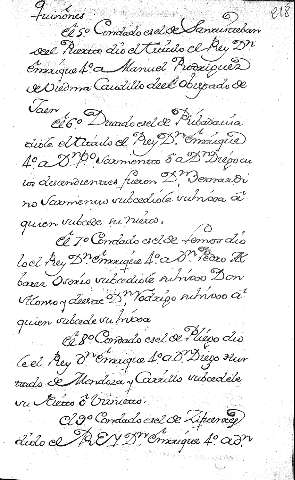 Quiñones 218
El 5º Condado es el de Santisteban
del Puerto dio el titulo el Rey Dn
Enrrique 4º a Manuel Rodriguez
de Viedma Caudillo del Obispado de
Jaen
El 6º Ducado es el de Ribadavia
diole el titulo el Rey Dn Enrrique
4º a Dn Pº Sarmiento o a Dn Diego cu
ios descendientes fueron Dn Bernardi
no Sarmiento subcediole su hija a
quien subcede su nieto.
El 7º Condado es el de Lemos dio
lo el Rey Dn Enrrique 4º a Dn Pedro Al
barez Osorio subcediole su hijo Don
Alonso y deste Dn Rodrigo su hijo a
quien subcede su hija
El 8º Condado es el de Pliego dio
le el Rey Dn Enrrique 4º a Dn Diego Hur
tado de Mendoza y Carrillo subcedele
su nieto
El 9º Condado es el de Zifuentes
diolo el REY Dn Enrrique 4º a Dn